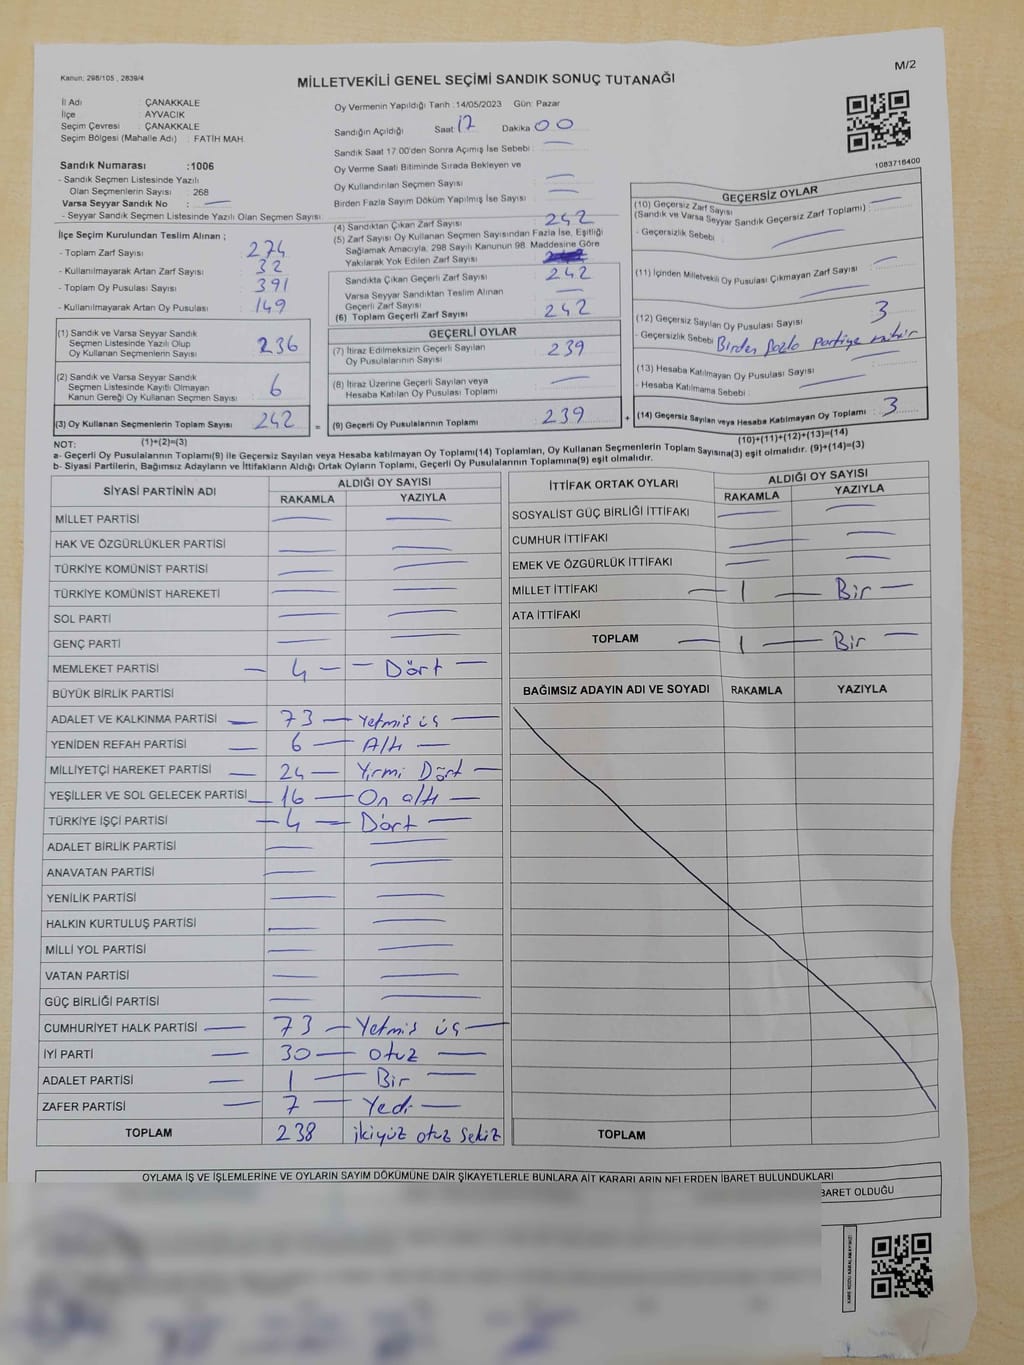 Kanun: 298/105 , 2839/4
M/2
MİLLETVEKİLİ GENEL SEÇİMİ SANDIK SONUÇ TUTANAĞI
İl Adı : ÇANAKKALE
İlçe : AYVACIK
Seçim Çevresi : ÇANAKKALE
Seçim Bölgesi (Mahalle Adı) : FATİH MAH
Sandık Numarası :1006
- Sandık Seçmen Listesinde Yazılı
Olan Seçmenlerin Sayısı : 268
Varsa Seyyar Sandık No : —
- Seyyar Sandık Seçmen Listesinde Yazılı Olan Seçmen Sayısı
Oy Vermenin Yapıldığı Tarih :14/05/2023 Gün: Pazar
Sandığın Açıldığı Saat 17 Dakika 00
Sandık Saat 17:00'den Sonra Açımış İse Sebebi : —
Oy Verme Saati Bitiminde Sırada Bekleyen ve
Oy Kullandırılan Seçmen Sayısı —
Birden Fazla Sayım Döküm Yapılmış İse Sayısı —
1083716400
İlçe Seçim Kurulundan Teslim Alınan ;
- Toplam Zarf Sayısı 274
- Kullanılmayarak Artan Zarf Sayısı : 32
- Toplam Oy Pusulası Sayısı : 391
- Kullanılmayarak Artan Oy Pusulası : 149
(1) Sandık ve Varsa Seyyar Sandık
Seçmen Listesinde Yazılı Olup
Oy Kullanan Seçmenlerin Sayısı : 236
(2) Sandık ve Varsa Seyyar Sandık
Seçmen Listesinde Kayıtlı Olmayan
Kanun Gereği Oy Kullanan Seçmen Sayısı : 6
(3) Oy Kullanan Seçmenlerin Toplam Sayısı : 242
(1)+(2)=(3)
(4) Sandıktan Çıkan Zarf Sayısı 242
(5) Zarf Sayısı Oy Kullanan Seçmen Sayısından Fazla İse, Eşitliği
Sağlamak Amacıyla, 298 Sayılı Kanunun 98. Maddesine Göre
Yakılarak Yok Edilen Zarf Sayısı
Sandıkta Çıkan Geçerli Zarf Sayısı : 242
Varsa Seyyar Sandıktan Teslim Alınan
Geçerli Zarf Sayısı : —
(6) Toplam Geçerli Zarf Sayısı : 242
GEÇERLİ OYLAR
(7) İtiraz Edilmeksizin Geçerli Sayılan
Oy Pusulalarının Sayısı : 239
(8) İtiraz Üzerine Geçerli Sayılan veya
Hesaba Katılan Oy Pusulası Toplamı : —
= (9) Geçerli Oy Pusulalarının Toplamı : 239
GEÇERSİZ OYLAR
(10) Geçersiz Zarf Sayısı
(Sandık ve Varsa Seyyar Sandık Geçersiz Zarf Toplamı) : —
- Geçersizlik Sebebi : —
(11) İçinden Milletvekili Oy Pusulası Çıkmayan Zarf Sayısı : —
(12) Geçersiz Sayılan Oy Pusulası Sayısı : 3
- Geçersizlik Sebebi : Birden fazla partiye
(13) Hesaba Katılmayan Oy Pusulası Sayısı : —
- Hesaba Katılmama Sebebi : —
+ (14) Geçersiz Sayılan veya Hesaba Katılmayan Oy Toplamı : 3
(10)+(11)+(12)+(13)=(14)
NOT:
a- Geçerli Oy Pusulalarının Toplamı(9) ile Geçersiz Sayılan veya Hesaba katılmayan Oy Toplamı(14) Toplamları, Oy Kullanan Seçmenlerin Toplam Sayısına(3) eşit olmalıdır. (9)+(14)=(3)
b- Siyasi Partilerin, Bağımsız Adayların ve İttifakların Aldığı Ortak Oyların Toplamı, Geçerli Oy Pusulalarının Toplamına(9) eşit olmalıdır.
SİYASİ PARTİNİN ADI ALDIĞI OY SAYISI
RAKAMLA YAZIYLA
MİLLET PARTİSİ — —
HAK VE ÖZGÜRLÜKLER PARTİSİ — —
TÜRKİYE KOMÜNİST PARTİSİ — —
TÜRKİYE KOMÜNİST HAREKETİ — —
SOL PARTİ — —
GENÇ PARTİ — —
MEMLEKET PARTİSİ — 4 — — Dört —
BÜYÜK BİRLİK PARTİSİ
ADALET VE KALKINMA PARTİSİ — 73 — Yetmis üç —
YENİDEN REFAH PARTİSİ — 6 — Altı —
MİLLİYETÇİ HAREKET PARTİSİ — 24 — Yirmi Dört —
YEŞİLLER VE SOL GELECEK PARTİSİ — 16 — On altı —
TÜRKİYE İŞÇİ PARTİSİ — 4 — Dört —
ADALET BİRLİK PARTİSİ — —
ANAVATAN PARTİSİ — —
YENİLİK PARTİSİ — —
HALKIN KURTULUŞ PARTİSİ — —
MİLLİ YOL PARTİSİ — —
VATAN PARTİSİ — —
GÜÇ BİRLİĞİ PARTİSİ — —
CUMHURİYET HALK PARTİSİ — 73 — Yetmis üç —
İYİ PARTİ — 30 — otuz —
ADALET PARTİSİ — 1 — Bir —
ZAFER PARTİSİ — 7 — Yedi —
TOPLAM 238 ikiyüz otuz sekiz
İTTİFAK ORTAK OYLARI ALDIĞI OY SAYISI
RAKAMLA YAZIYLA
SOSYALİST GÜÇ BİRLİĞİ İTTİFAKI — —
CUMHUR İTTİFAKI — —
EMEK VE ÖZGÜRLÜK İTTİFAKI — —
MİLLET İTTİFAKI — 1 — Bir —
ATA İTTİFAKI
TOPLAM — 1 — Bir —
BAĞIMSIZ ADAYIN ADI VE SOYADI RAKAMLA YAZIYLA
TOPLAM
OYLAMA İŞ VE İŞLEMLERİNE VE OYLARIN SAYIM DÖKÜMÜNE DAİR ŞİKAYETLERLE BUNLARA AİT KARARLARIN NELERDEN İBARET BULUNDUKLARI
BARET OLDUĞU
KARE KODU KARALAMAYINIZ!